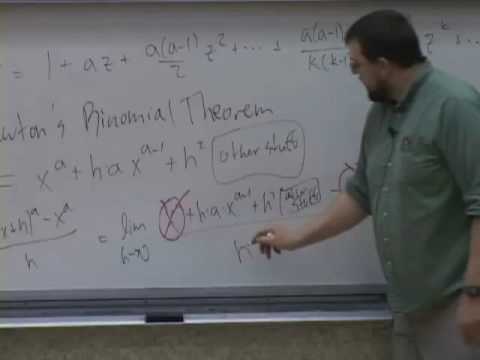 = 1 + az + a(a-1)/2 z² + ... + a(a-1)/k(k-1 z^k + ...
ewton's Binomial Theorem
= x^a + h a x^(a-1) + h² other stuff
x+h)^a - x^a / h = lim h→0 x + h a x^(a-1) + h² other stuff / h